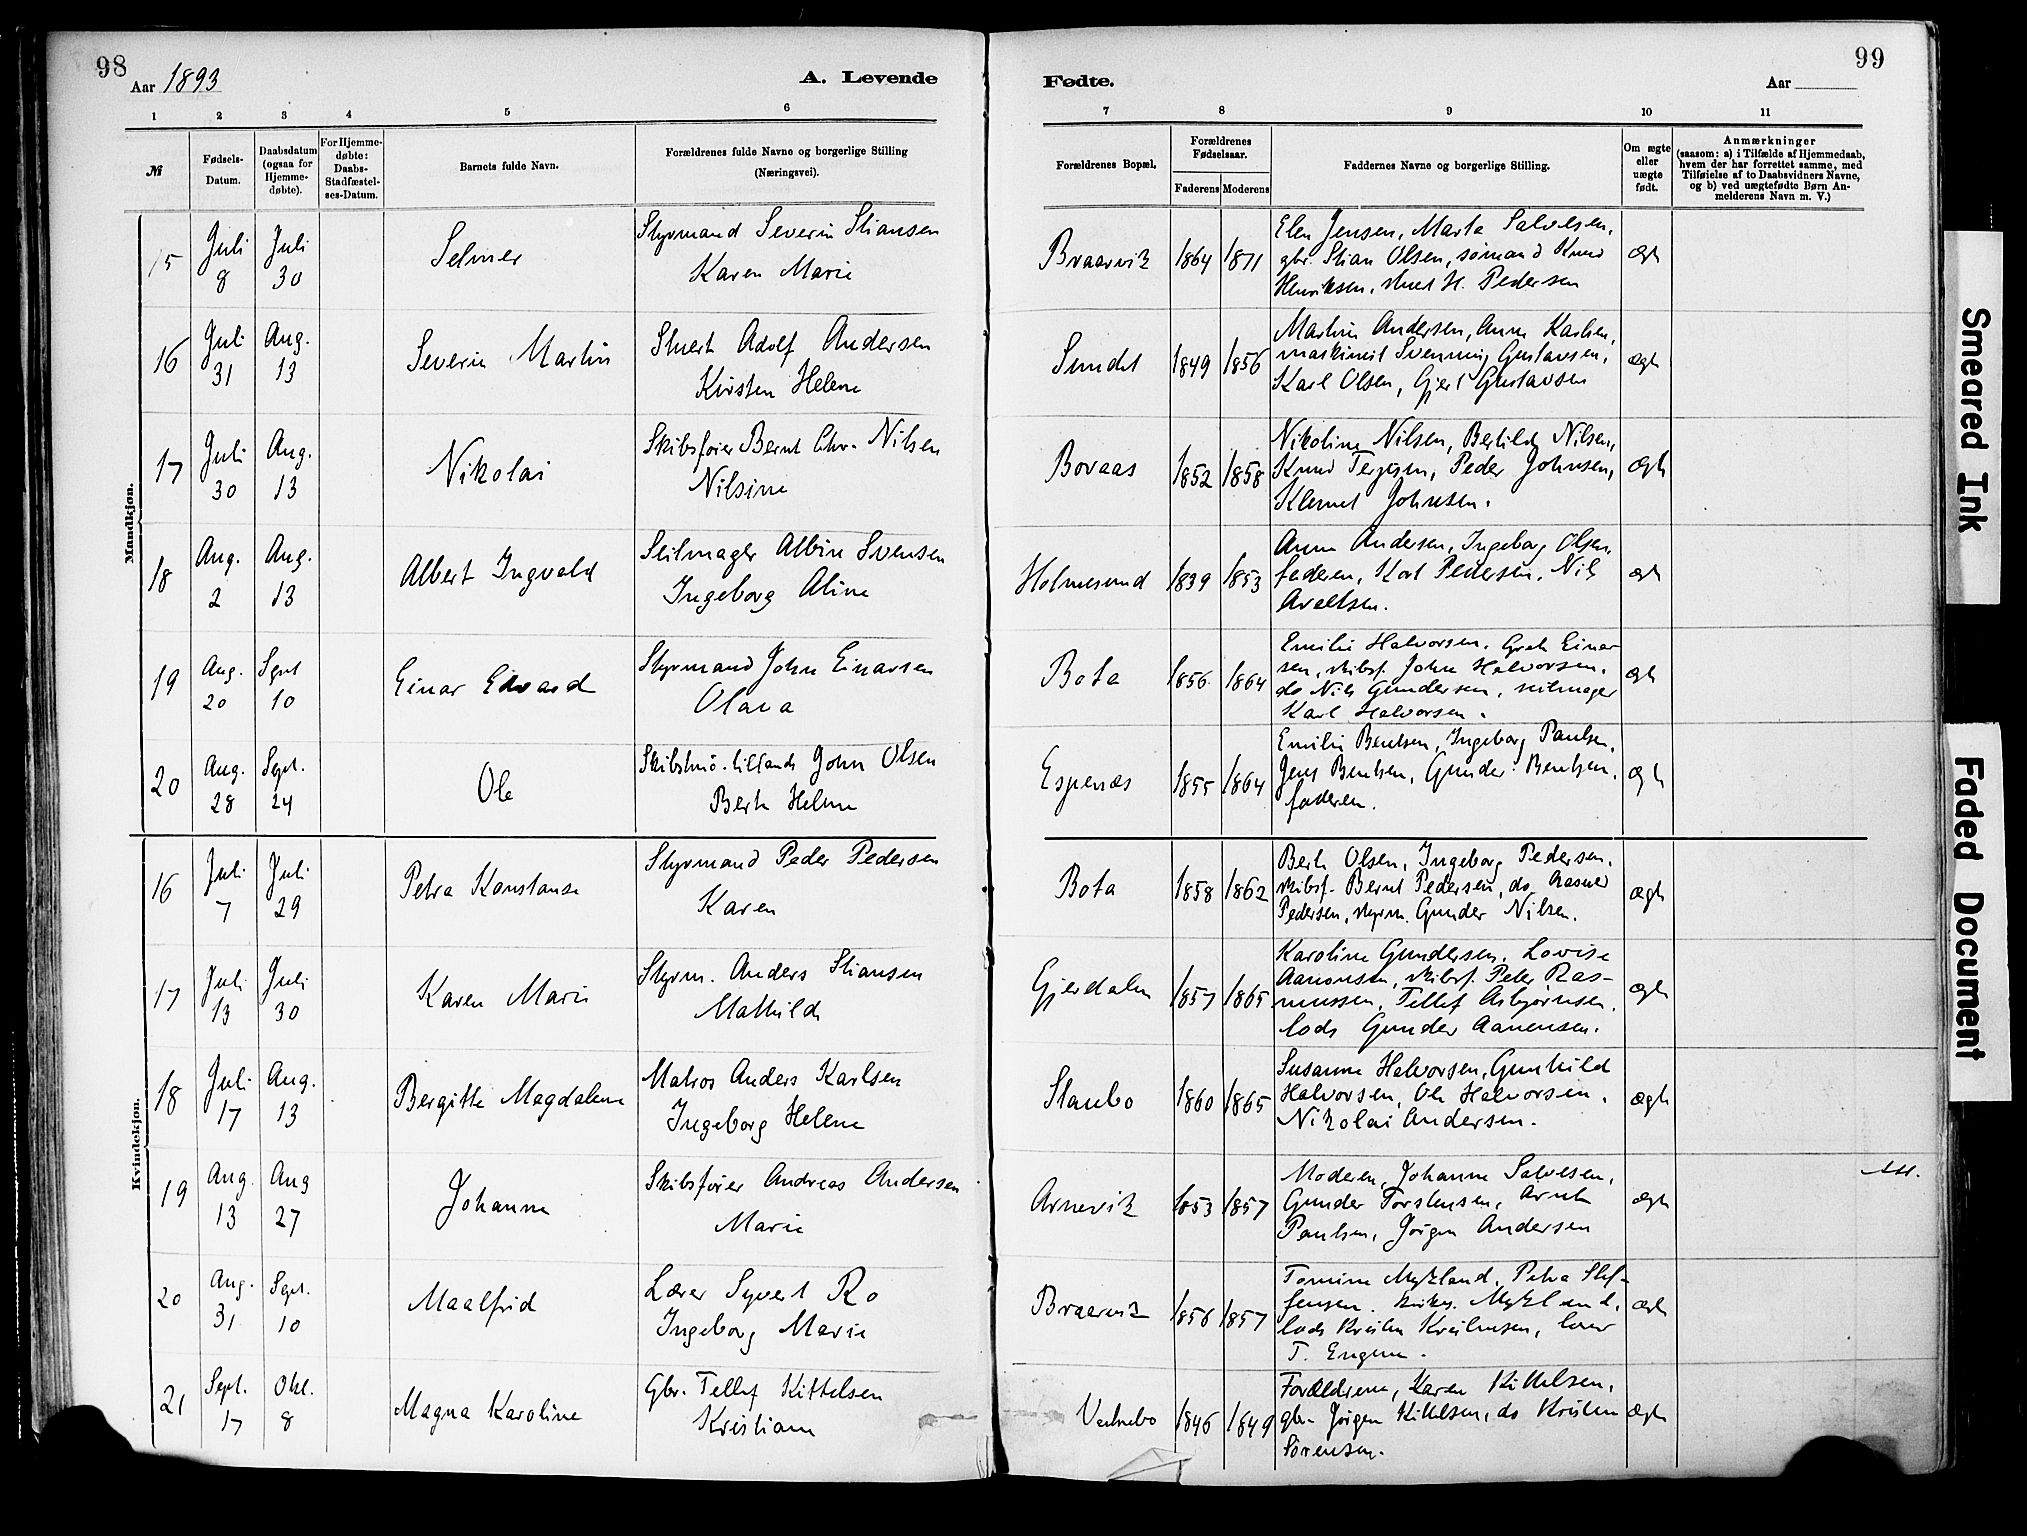 98
Aar 1893
A. Levende
1 2 3 4 5 6
№
Fødsels-Datum.
Daabsdatum (ogsaa for Hjemme-døbte).
For Hjemme-døbte: Daabs-Stadfæstel-ses-Datum.
Barnets fulde Navn.
Forældrenes fulde Navne og borgerlige Stilling (Næringsvei).
99
Fødte.
Aar
7 8 9 10 11
Forældrenes Bopæl.
Forældrenes Fødselsaar.
Faderens Moderens
Faddernes Navne og borgerlige Stilling.
Om ægte eller uægte født.
Anmærkninger
(saasom: a) i Tilfælde af Hjemmedaab,
hvem der har forrettet samme, med
Tilføielse af to Daabsvidners Navne,
og b) ved uægtefødte Børn An-
melderens Navn m. V.)
Mandkjøn.
15 Juli 8 Juli 30 Selmer
Styrmand Severin Stiansen
Karen Marie
Braarvik 1864 1871
Elen Jensen, Marta Salvesen,
gbr. Stian Olsen, sømand Knud
Henriksen, H. Pedersen
ægte
16 Juli 31 Aug. 13 Severin Martin
Stuert Adolf Andersen
Kirsten Helene
Sundet 1849 1856
Martin Andersen, Anne Karlsen,
maskinist Svenning Gustavsen,
Karl Olsen, Gjert Gustavsen
ægte
17 Juli 30 Aug. 13 Nikolai
Skibsfører Bernt Chr. Nilsen
Nilsine
Bovaas 1852 1858
Nikoline Nilsen, Bertilde Nilsen,
Knud Terjesen, Peder Johnsen,
Klemet Johnsen.
ægte
18 Aug. 2 Aug. 13 Albert Ingvald
Seilmager Albin Svensen
Ingeborg Aline
Holmesund 1839 1853
Anne Andersen, Ingeborg Olsen,
faderen, Karl Pedersen, Nils
Axelsen.
ægte
19 Aug. 20 Sept 10 Einar Edvard
Styrmand John Einarsen
Olava
Bota 1856 1864
Emilie Halvorsen, Grete Einar
sen, skibsf. John Halvorsen,
do Nils Gundersen, seilmager
Karl Halvorsen.
ægte
20 Aug. 28 Sept. 24 Ole
John Olsen
Berte Helene
Espenæs 1855 1864
Emilie Bentsen, Ingeborg Paulsen,
Jens Bentsen, Gunder Bentsen,
faderen.
ægte
Kvindekjøn.
16 Juli 7 Juli 29 Petra Konstanse
Styrmand Peder Pedersen
Karen
Bota 1858 1862
Berte Olsen, Ingeborg Pedersen,
skibsf. Bernt Pedersen, do Aasuld
Pedersen, styrm. Gunder Nilsen.
ægte
17 Juli 13 Juli 30 Karen Marie
Styrm. Anders Stiansen
Mathilde
Gjerdalen 1857 1865
Karoline Gundersen, Lovise
Aanonsen, skibsf. Peter Ras-
mussen, Tellef Asbjørnsen,
lods Gunder Aanensen.
ægte
18 Juli 17 Aug. 13 Bergitte Magdalene
Matros Anders Karlsen
Ingeborg Helene
Staubo 1860 1865
Susanne Halvorsen, Gunhild
Halvorsen, Ole Halvorsen,
Nikolai Andersen.
ægte
19 Aug. 13 Aug 27 Johanne
Skibsfører Andreas Andersen
Marie
Arnevik 1853 1857
Moderen, Johanne Salvesen,
Gunder Torstensen, Arnt
Paulsen, Jørgen Andersen
ægte
20 Aug. 31 Sept. 10 Maalfrid
Lærer Syvert Ro
Ingeborg Marie
Braarvik 1856 1857
Tomine Mykland, Petra Stef-
fensen, Mykland,
lods Kristen Kristensen, lærer
T. Engene.
ægte
21 Sept. 17 Okt. 8 Magna Karoline
Gbr. Tellef Kittelsen
Kristiane
Vestnebo 1846 1849
Forældrene, Karen Kittelsen,
gbr. Jørgen Kittelsen, do Kristen
Sørensen.
ægte
Smeared Ink
Faded Document